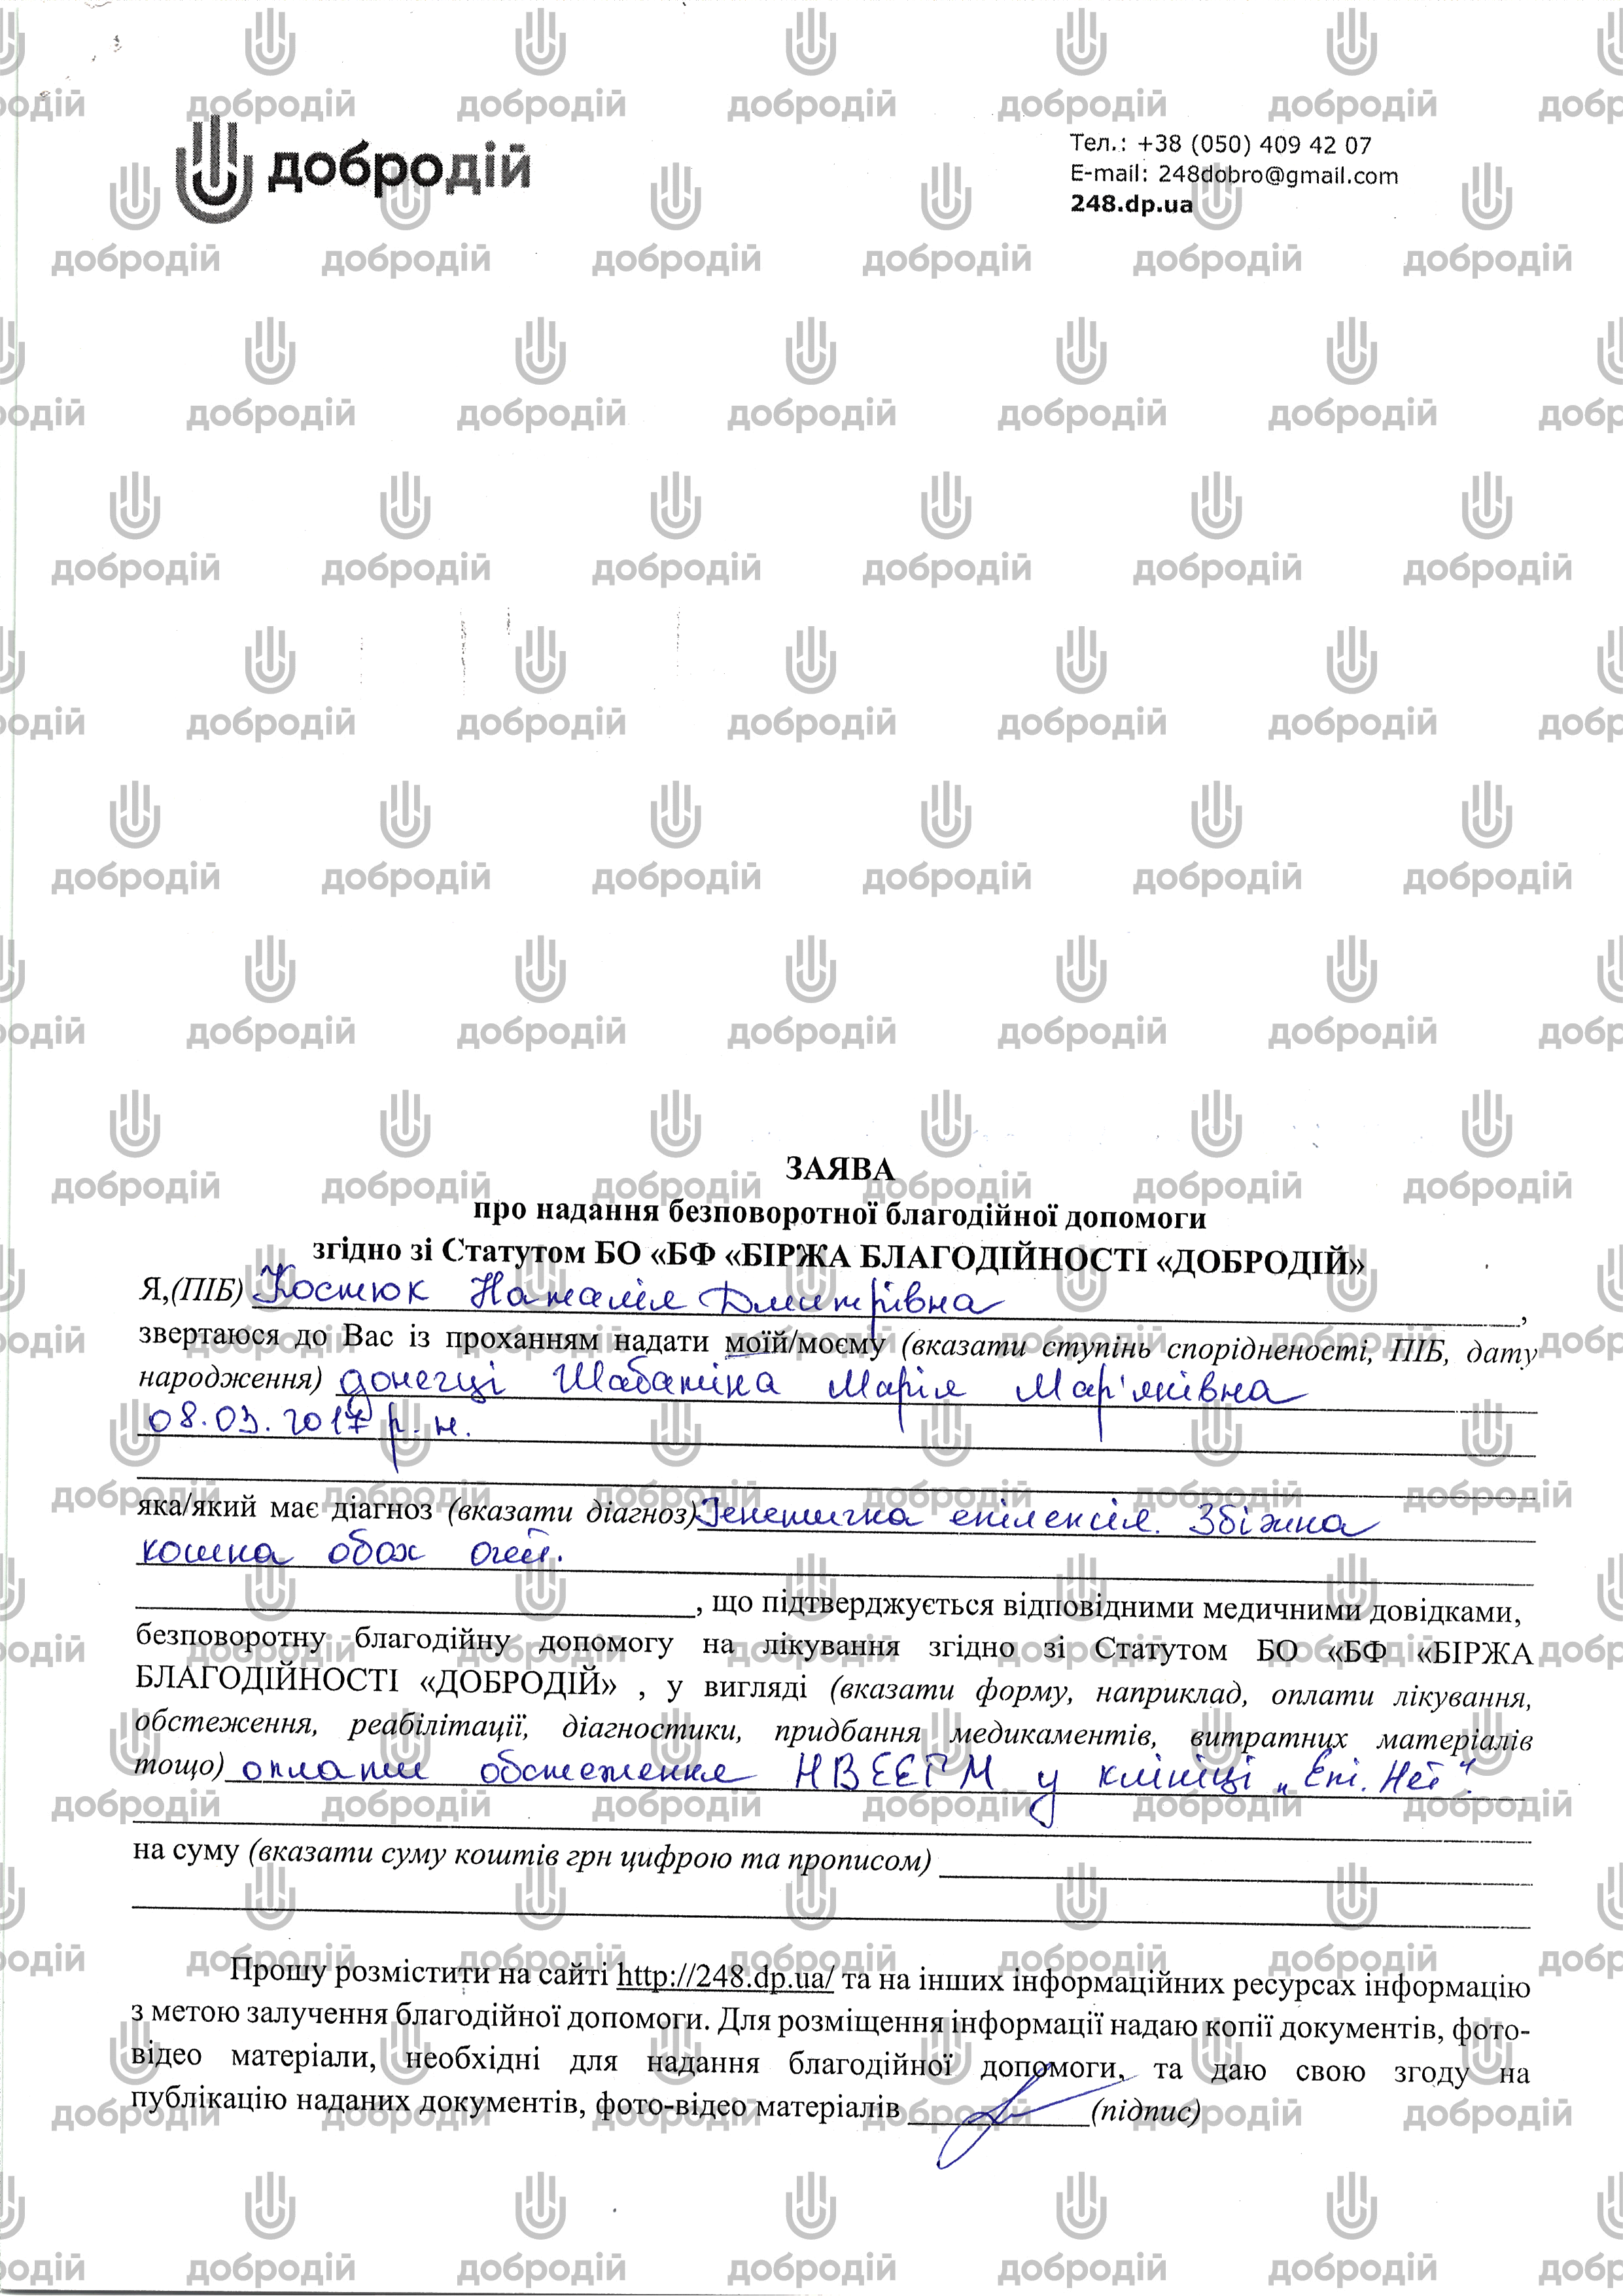 добродій
Тел.: +38 (050) 409 42 07
E-mail: 248dobro@gmail.com
248.dp.ua
ЗАЯВА
про надання безповоротної благодійної допомоги
згідно зі Статутом БО «БФ «БІРЖА БЛАГОДІЙНОСТІ «ДОБРОДІЙ»
Я,(ПІБ) Костюк Наталія Дмитрівна,
звертаюся до Вас із проханням надати моїй/моєму (вказати ступінь спорідненості, ПІБ, дату
народження) донечці Шабаніна Марія Мар'янівна
08.03.2017 р.н.
яка/який має діагноз (вказати діагноз) Генетична епілепсія. Збіжна
косина обох очей.
, що підтверджується відповідними медичними довідками,
безповоротну благодійну допомогу на лікування згідно зі Статутом БО «БФ «БІРЖА
БЛАГОДІЙНОСТІ «ДОБРОДІЙ» , у вигляді (вказати форму, наприклад, оплати лікування,
обстеження, реабілітації, діагностики, придбання медикаментів, витратних матеріалів
тощо) оплати обстеження НВЕЕГМ у клініці
на суму (вказати суму коштів грн цифрою та прописом)
Прошу розмістити на сайті http://248.dp.ua/ та на інших інформаційних ресурсах інформацію
з метою залучення благодійної допомоги. Для розміщення інформації надаю копії документів, фото-
відео матеріали, необхідні для надання благодійної допомоги, та даю свою згоду на
публікацію наданих документів, фото-відео матеріалів (підпис)